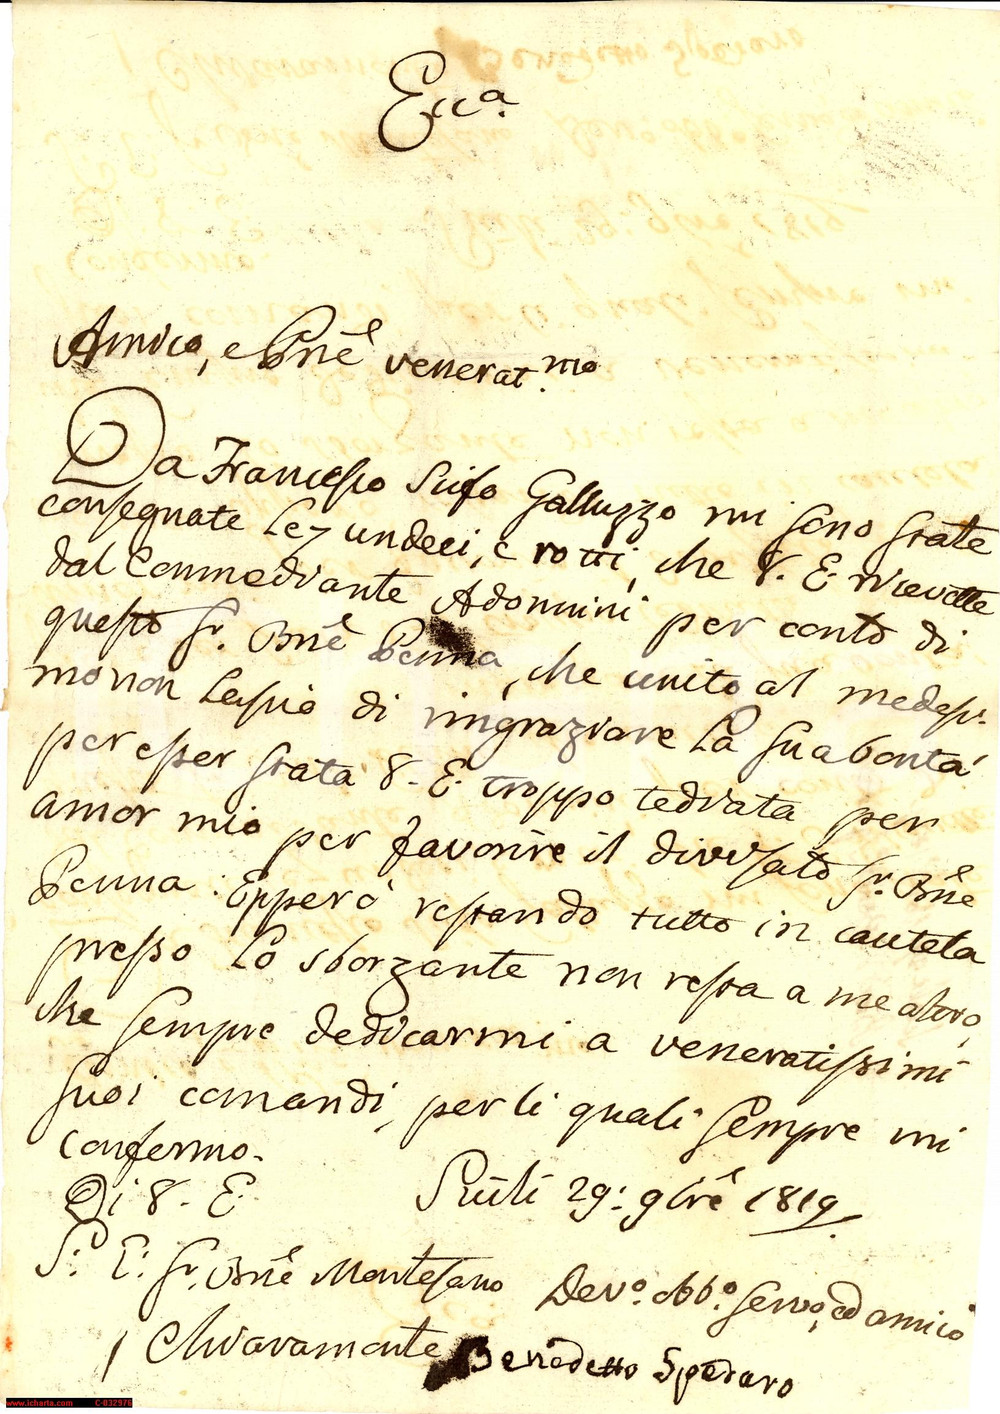 Ecc.a
Amico, e Bnē venerat.mo
Da Francesco Scifo Galluzzo mi sono state
consegnate le z undeci, e rotti, che V. E. ricevette
dal Commediante Adonnini per conto di
questo Sr. Bnē Penna, che unito al medesi-
mo non lascio di ringraziare la sua bontà
per esser stata V. E. troppo tediata per
amor mio per favorire il divisato Sr. Bnē
Penna: Epperò restando tutto in cautela
presso lo sborzante non resta a me altro,
che sempre dedicarmi a veneratissimi
suoi comandi, per li quali sempre mi
confermo.
Di V. E. 29: 9brē 1819.
S: E: Sr. Bnē Montesano Dev.o obb.o servo, ed amico
Chiaramonte Benedetto Spadaro
www.icharta.com C-832976